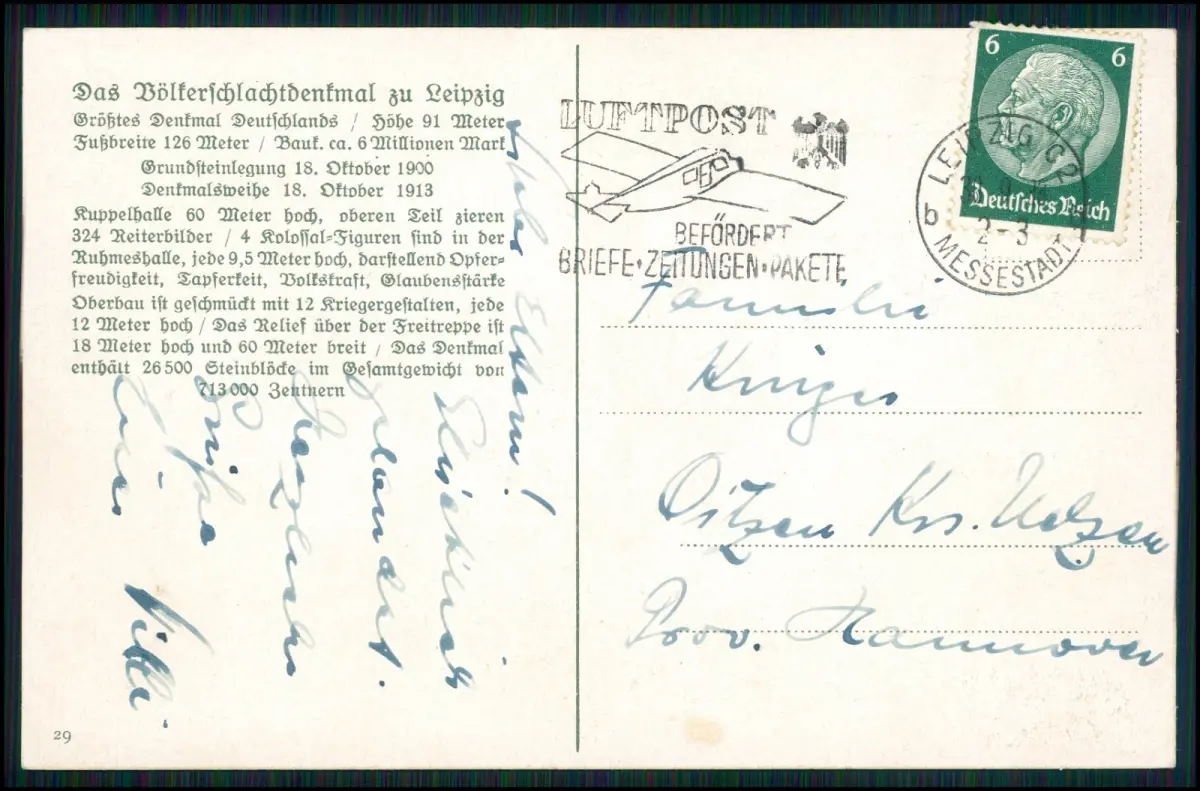 Das Völkerschlachtdenkmal zu Leipzig
Größtes Denkmal Deutschlands / Höhe 91 Meter
Fußbreite 126 Meter / Bauk. ca. 6 Millionen Mark
Grundsteinlegung 18. Oktober 1900
Denkmalsweihe 18. Oktober 1913
Kuppelhalle 60 Meter hoch, oberen Teil zieren
324 Reiterbilder / 4 Kolossal-Figuren sind in der
Ruhmeshalle, jede 9,5 Meter hoch, darstellend Opfer-
freudigkeit, Tapferkeit, Volkskraft, Glaubensstärke
Oberbau ist geschmückt mit 12 Kriegergestalten, jede
12 Meter hoch / Das Relief über der Freitreppe ist
18 Meter hoch und 60 Meter breit / Das Denkmal
enthält 26500 Steinblöcke im Gesamtgewicht von
713000 Zentnern
Eltern!
gelandet.
Herzliche
Grüße
Euer
Willi
29
LUFTPOST
BEFÖRDERT
BRIEFE•ZEITUNGEN•PAKETE
6 6
Deutsches Reich
LEIPZIG C2
2-3
b MESSESTADT
Familie
Oitzen Krs. Uelzen
Prov. Hannover